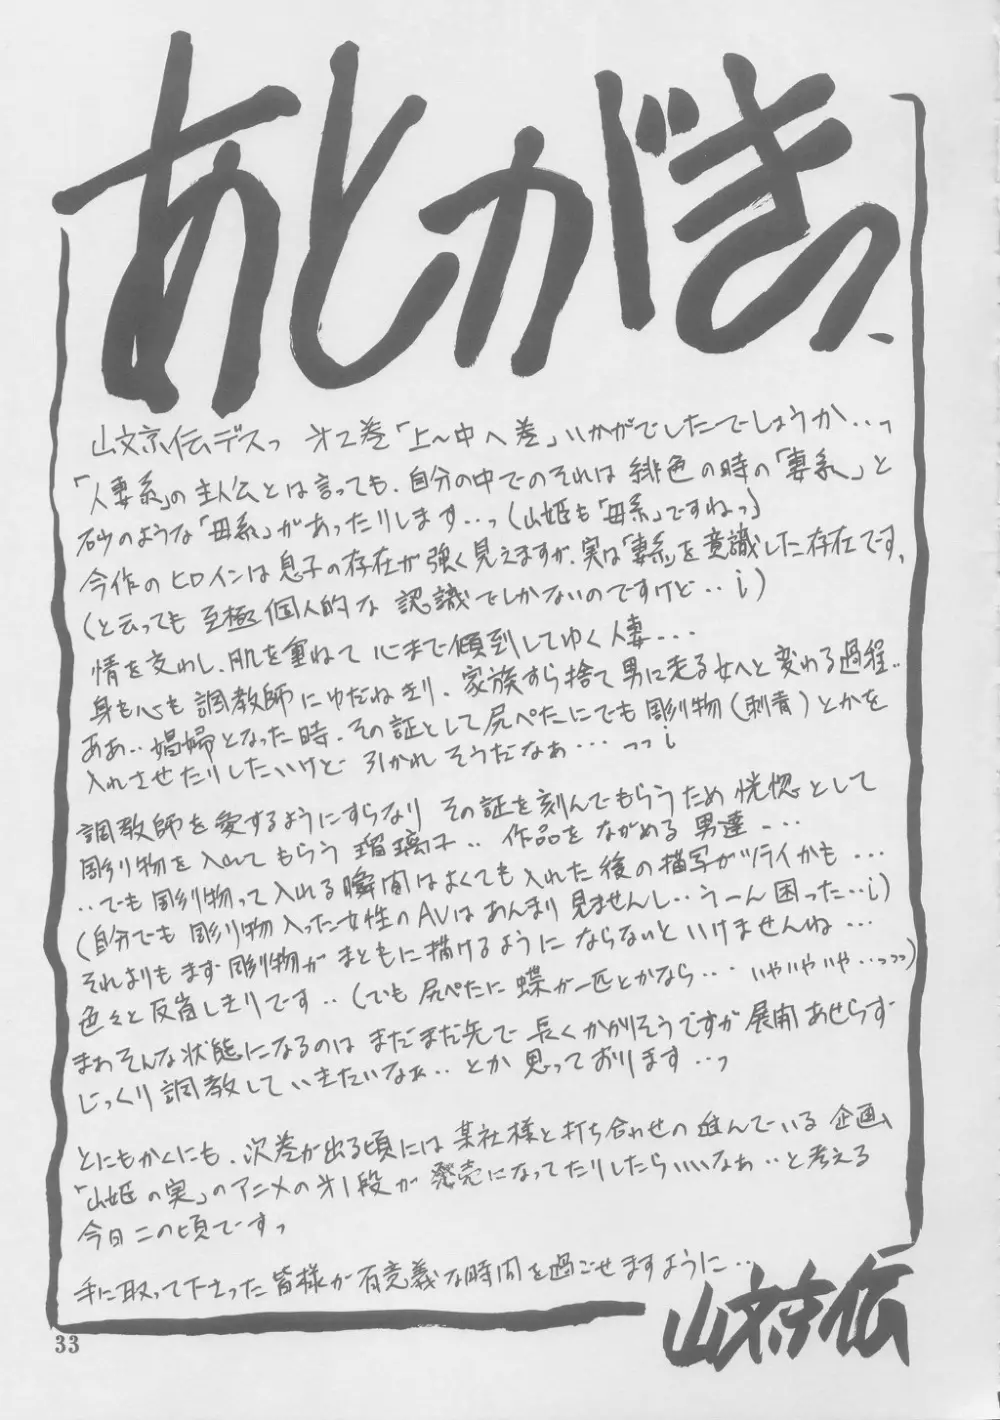 あとがきっ、
山文京伝デスっ 才2巻「上〜中へ巻」いかがでしたでしょうか…っ
「人妻系」の主人公とは言っても、自分の中でのそれは 緋色の時の「妻系」と
砂のような「母系」があったりします…っ(山姫も「母系」ですねっ)
今作のヒロインは息子の存在が強く見えますが、実は「妻系」を意識した存在です、
(と云っても 至極個人的な 認識でしかないのですけど‥i)
情を交わし、肌を重ねて 心まで傾倒してゆく人妻...
身も心も 調教師にゆだねきり、家族すら捨て男に走る女へと変わる過程..
ああ.. 娼婦となった時、その証として尻ぺたにでも彫り物(刺青)とかを
入れさせたりしたいけど 引かれそうだなぁ… っっi
調教師を愛するようにすらなり その証を刻んでもらうため 恍惚として
彫り物を入れてもらう 瑠璃子.. 作品をながめる男達...
..でも彫り物って入れる瞬間はよくても入れた後の描写がツライかも...
(自分でも彫り物入った女性のAVはあんまり見ませんし‥うーん困った…i)
それよりもまず彫り物がまともに描けるようにならないといけませんね...
色々と反省しきりです..(でも尻ぺたに蝶が一匹とかなら... いやいやいや‥っっっ)
まぁそんな状態になるのは まだまだ先で 長くかかりそうですが 展開あせらず
じっくり調教していきたいなぁ.. とか思っております…っ
とにもかくにも、次巻が出る頃には 某社様と打ち合わせの進んでいる企画、
「山姫の実」のアニメの才1段が 発売になってたりしたらいいなぁ‥と考える
今日この頃ですっ
手に取って下さった皆様が有意義な時間を過ごせますように…
山文京伝
33